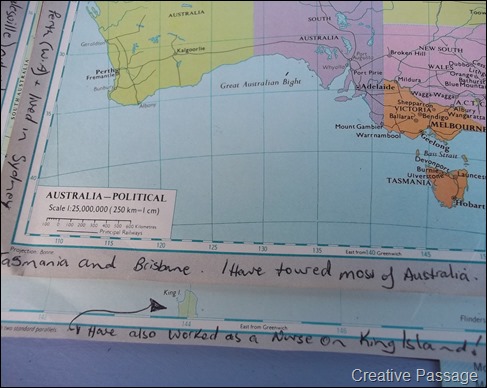 AUSTRALIA
SOUTH
AUSTRALIA
Geraldton
Kalgoorlie
Perth
Fremantle
Bunbury
Albany
Great Australian Bight
Port Augusta
Whyalla
Port Pirie
Adelaide
Broken Hill
NEW SOUTH
WALES
Mildura
Wagga Wagga
A C T
Shepparton
Albury
VICTORIA
Wangaratta
Ballarat
Bendigo
MELBOURNE
Mount Gambier
Geelong
Warrnambool
Bass Strait
Devonport
Burnie
Ulverstone
Launces
TASMANIA
Hobart
Perth (W.A) & lived in Sydney
AUSTRALIA—POLITICAL
Scale 1:25,000,000 (250 km=1 cm)
Principal Railways
110 115 120 125 130 135 140 145
Projection: Bonne
East from 140 Greenwich
Tasmania and Brisbane. I Have towred most of Australia.
King I.
two standard parallels
144
East from Greenwich
Flinders
I Have also worked as a Nurse on King Island!
Creative Passage